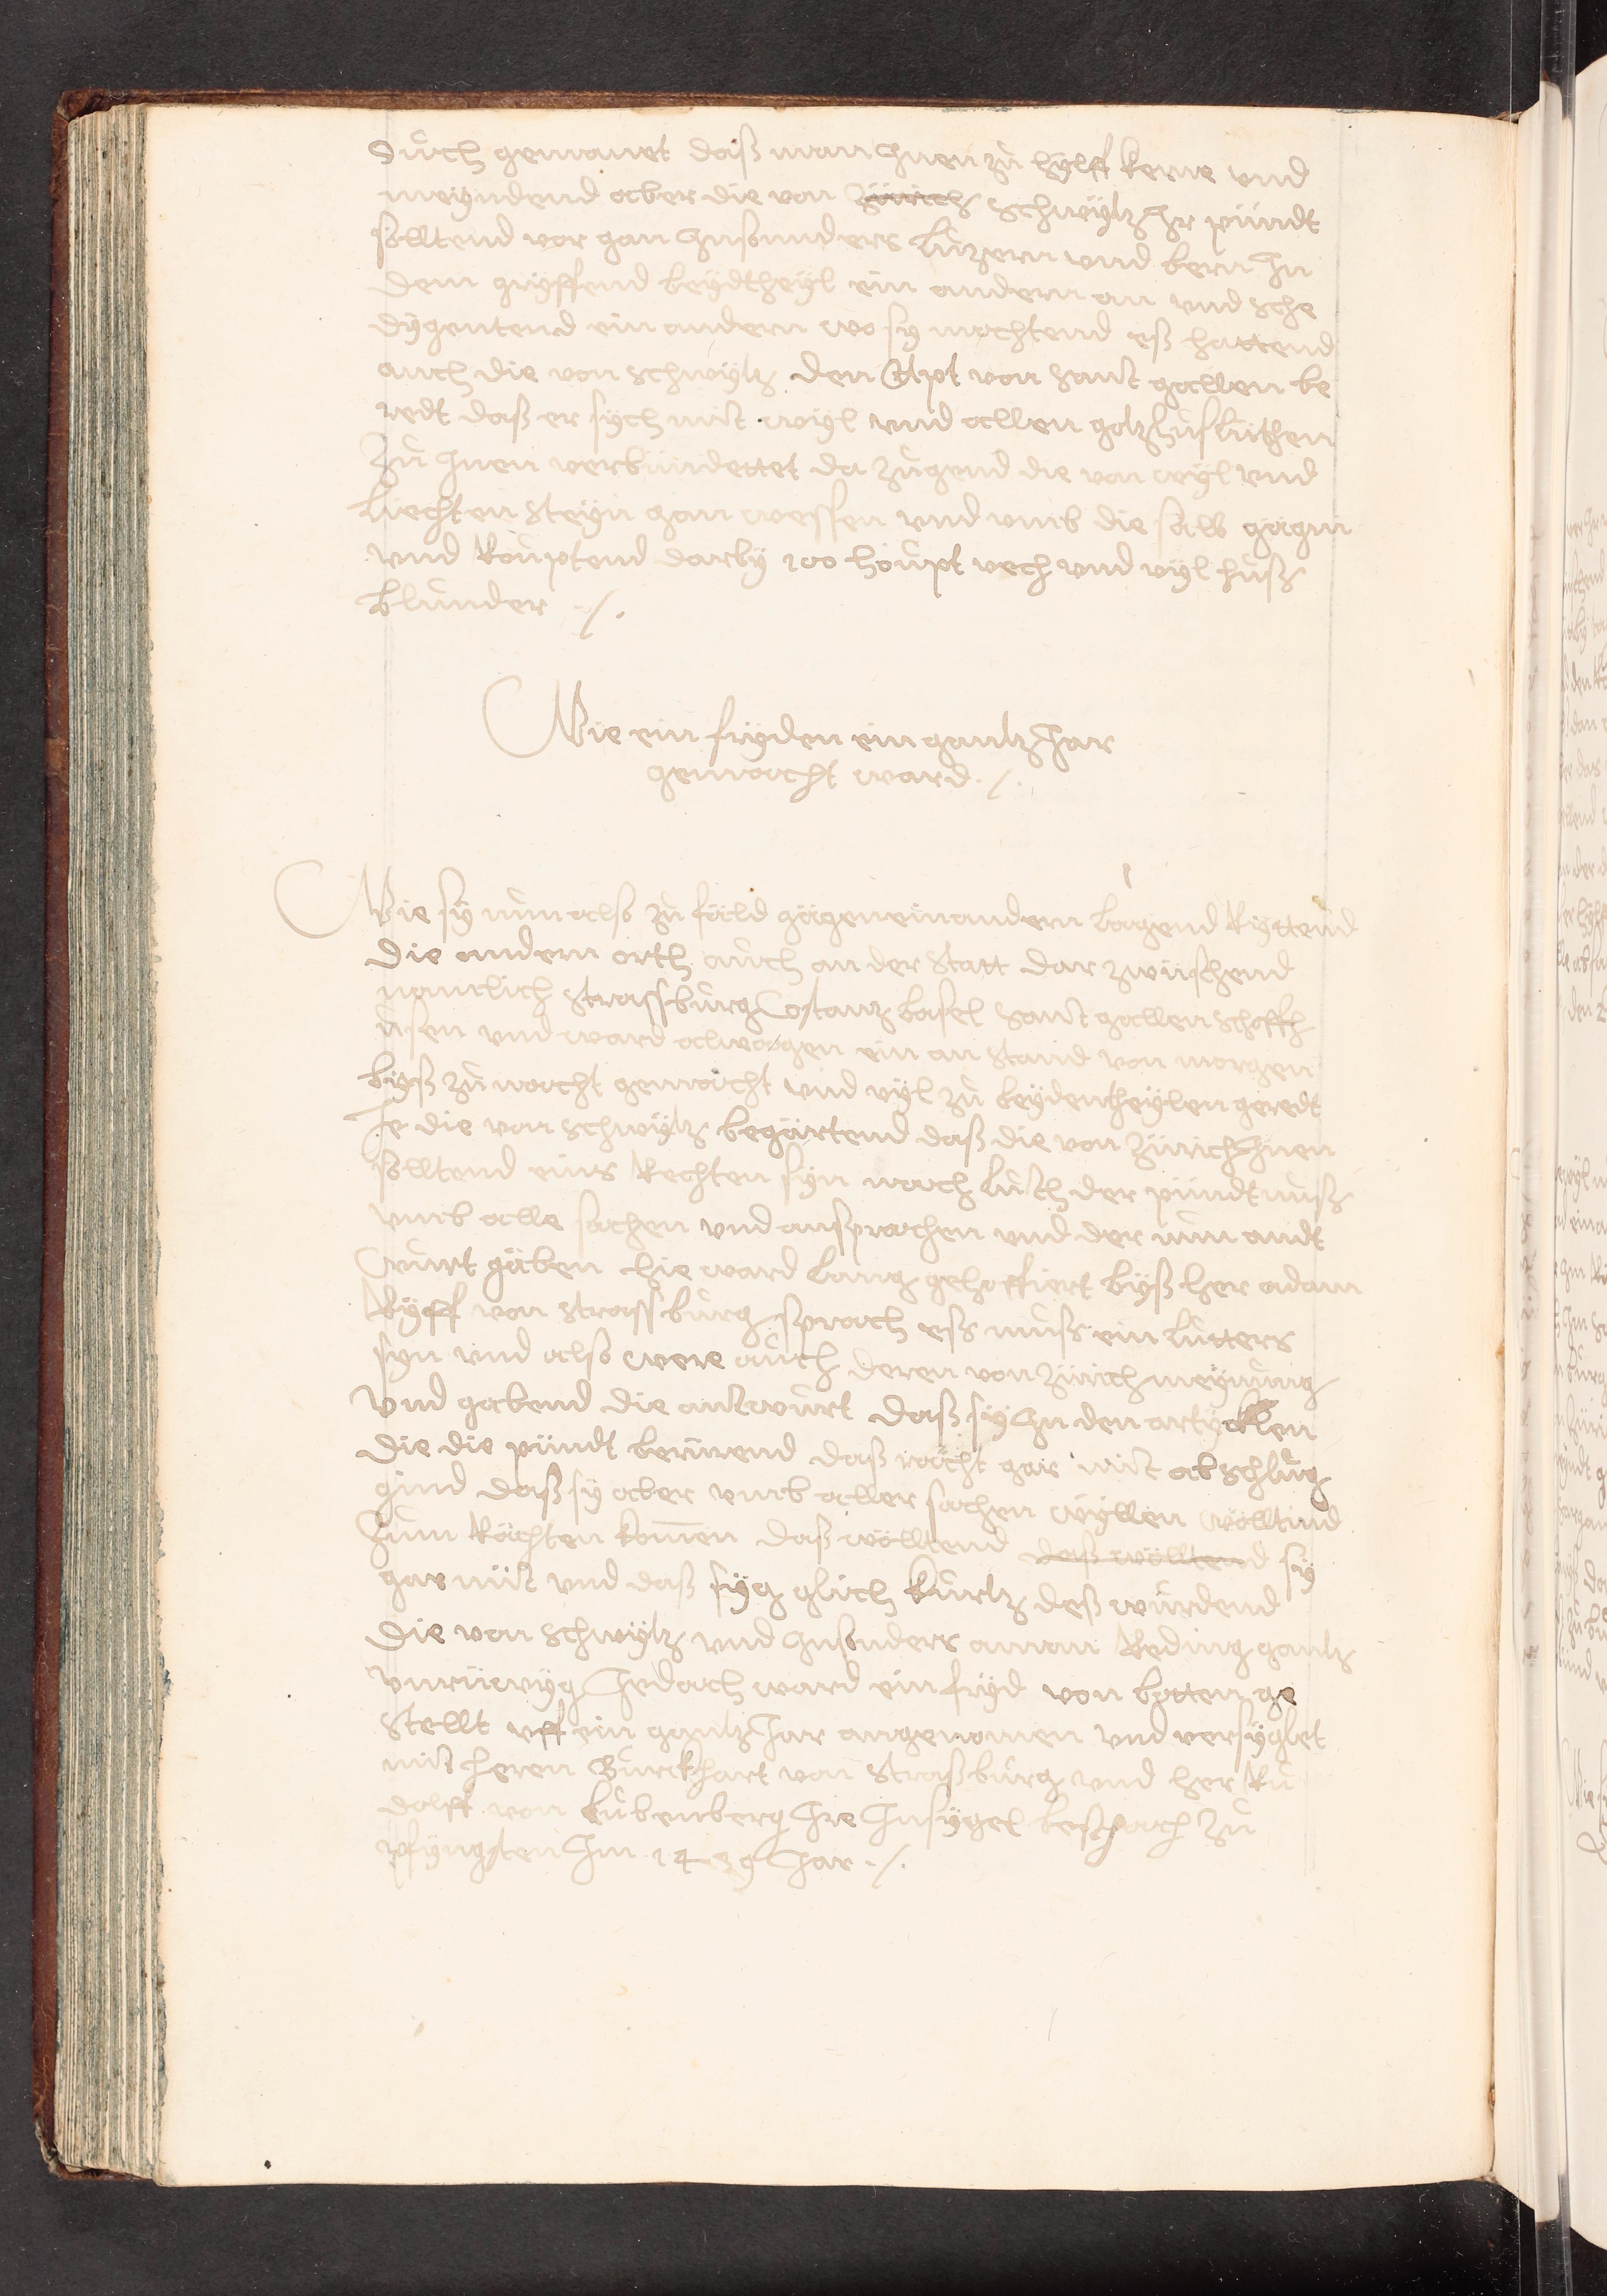 ouch gemanet daß man Jnen zu hylff keme und
meyndend aber die von Zürich schwytz Jr pündt
söltend vor gan Jnsunders luzern und bern Jn
dem gryffend beydtheyl ein andern an und sche
dygentend ein andern wo sy mochtend eß hattend
auch die von schwytz den Apt von sant gallen be
redt daß er sych mit wyl und allen gotzhuslüthen
zu Jnen verbündettet da zugend die von wyl und
liechten steyn gan wessen und umb die selb gägni
und Rouptend darby 100 houpt vech und vyl huß
blunder ./.
Wie ein fryden ein gantz Jar
gemacht ward ./.
Wie sy nun also zu fäld gägen einandern lagend Ryttend
die andern orth auch an der statt dar zwüschend
namlich strassburg Costanz basel sant gallen schaffh
usen und ward alwägen ein an stand von morgen
byß zu nacht gemacht und vyl zu beyden theylen geredt
Je die von schwytz begärtend daß die von Zürich Jnen
söltend eins Rechten syn nach luth der pündtnuß
umb alle sachen und ansprachen und der nun andt
wurt gäben hie ward lang gehoffiert byß her adam
Ryff von strassburg sprach eß muß ein lutters
syn und also were auch deren von Zürich meynung
und gabend die antwurt daß sy Jn den artycklen
die die pündt berürend daß rächt gar nit abschlug
gind daß sy aber umb aller sachen wyllen wölltind
zum Rächten komen daß wölltend daß wölltend sy
gar nüt und daß syg glich kurtz deß wurdend
die von schwytz und Jnsonders aman Reding gantz
unrüewyg Jedoch ward ein fryd von botten ge
stellt uff ein gantz Jar angenomen und versyglet
mit heren Burckhart von straßburg und her Ru
dolff von bubenberg Jre Jnsygel beschach zu
pfyngsten Jm 1439 Jar ./.